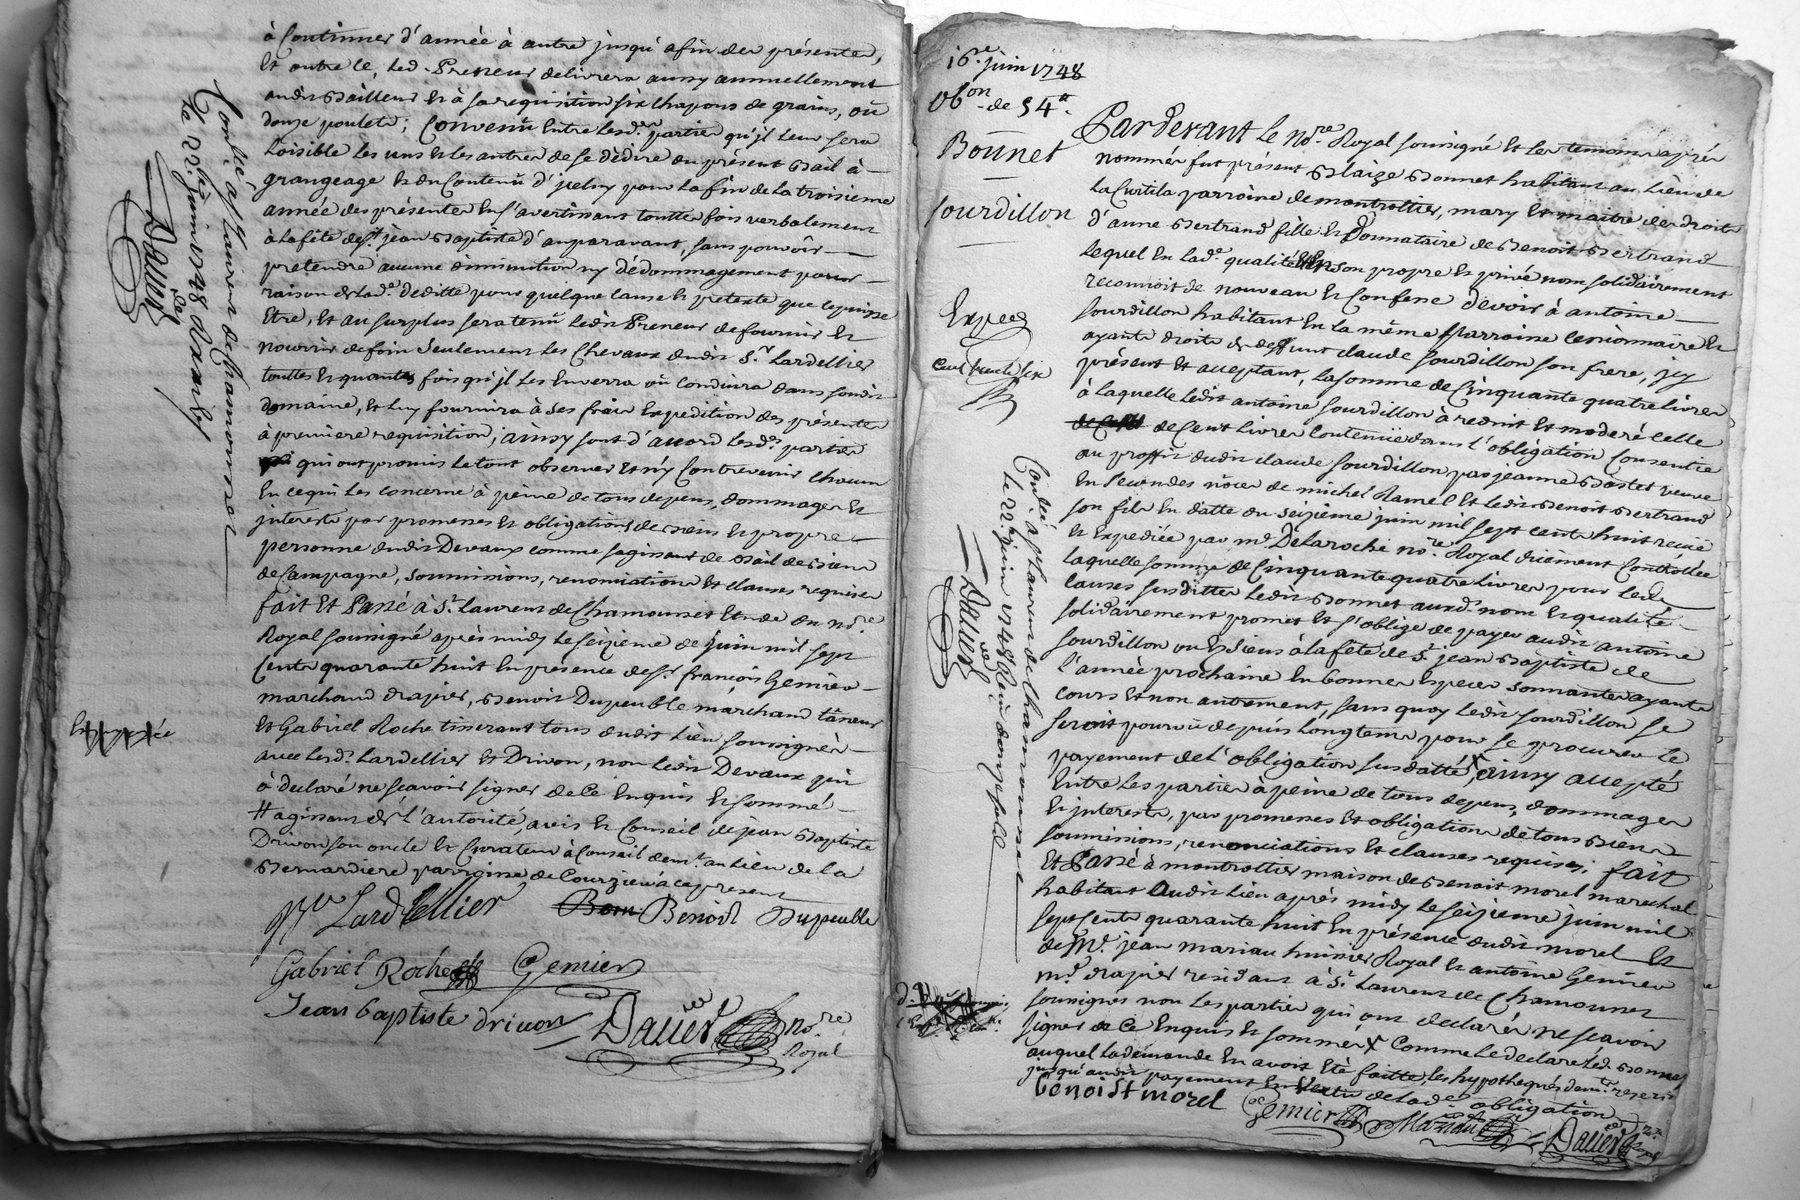 à Continuer d'année à autre jusqu'afin des présentes,
Et outre ce, led. Preneur delivrera aussy annuellement
audit Bailleur Et à sa requisition six chapons de grains, ou
douze poulets; Convenu Entre lesd. parties qu'jl leur sera
Loisible les uns Et les autres de se dédire du présent Bail à
grangeage Et du Contenu d'jceluy pour la fin de la troisieme
année des présentes En s'avertissant touttes fois verbalement
à la fête de St jean Baptiste d'auparavant, sans pouvoir
pretendre aucune diminution ny dédommagement pour
raison de lad.e deditte pour quelque cause Et pretexte que ce puisse
Etre, Et au surplus sera tenu ledit Preneur de fournir Et
nourrir de foin seulement les Chevaux dudit S.r Lardellier
touttes Et quantes fois qu'jl les Enverra ou Conduira dans soudit
domaine, Et luy fournira à ses frais Expedition des présentes
à premiere requisition, ainsy sont d'accord lesd.es parties
qui ont promis le tout observer Et n'y Contrevenir chacun
En ce qui les concerne à peine de tous depens, dommages Et
jnterests par promesses Et obligations de biens Et propre
personne dudit Devaux comme s'agissant de Bail de biens
de Campagne, soumissions, renonciations Et clauses requises
fait Et Passé à St. Laurens de Chamousset Etude du No.re
Royal soussigné après midy le seizieme de juin mil sept
Cents quarante huit En présence de Sr. françois Gemier
marchand drapier, Benoit Dupeuble marchand taneur
Et Gabriel Roche tisserant tous dudit Lieu soussignés
avec lesd. Lardellier Et Drivon, non ledit Devaux qui
à declaré ne scavoir signer de Ce Enquis Et sommé
# agissant de l'autorité, avis Et Conseil de jean Baptiste
Drivon son oncle Et Curateur à Conseil dem.t au Lieu de la
Bernardiere parroisse de Courzieu à ce present
Lardellier Benoist Dupeuble
Gabriel Roche Gemier
Jean baptiste drivon Davier No.re
Royal
Controllé a St Laurens de Chamousset
Le 22e juin 1748
Davier
Expediée
16.e juin 1748
Ob.on de 54#.
Bonnet
Sourdillon
Expée
Cent trente six
Pardevant Le No.re Royal soussigné Et les temoins après
nommés fut présent Blaize Bonnet habitant au Lieu de
La Curtila parroisse de montrottier, mary Et maitre des droits
d'anne Bertrand fille Et Donnataire de Benoit Bertrand
Lequel En lad.e qualité Et En son propre Et privé nom solidairement
reconnoit de nouveau Et Confesse devoir à antoine
Sourdillon habitant En la même Parroisse Cessionnaire Et
ayant droits de deffunt claude Sourdillon son frere, jcy
présent Et acceptant, la somme de Cinquante quatre Livres
à laquelle ledit antoine Sourdillon à reduit Et moderé celle
de Cent Livres Contenüe dans l'obligation Consentie
au proffit dudit claude Sourdillon par jeanne Bastet veuve
En Secondes nôces de michel Ramel Et ledit Benoit Bertrand
son fils En datte du seizieme juin mil sept cents huit receüe
Et Expediée par me Delaroche no.re Royal düement Controllée
Laquelle somme de Cinquante quatre Livres pour les
Causes susdittes ledit Bonnet auxd. nom Et qualité
solidairement promet Et s'oblige de payer audit antoine
Sourdillon ou Es siens à la fête de St. jean Baptiste de
l'année prochaine En bonnes Especes sonnantes ayants
cours Et non autrement, sans quoy ledit Sourdillon se
seroit pourvû depuis longtems pour se procurer le
payement de l'obligation susdatté X ainsy accepté
Entre les parties à peine de tous depens, dommages
Et jnterests, par promesses Et obligation de tous biens
soumissions, renonciations Et clauses requises; fait
Et Passé à montrottier maison de Benoit morel marechal
habitant audit lieu après midy le seizieme juin mil
sept Cents quarante huit En présence dudit morel Et
de Me. jean mariau huissier Royal Et antoine Gemier
md. drapier residant à St. Laurens de Chamousset
soussignés non les parties qui ont declarés ne scavoir
signer de Ce Enquis Et sommés X Comme le declare led. Bonnet
auquel la demande En avoit Eté faitte, les hypotheques dem.t reservés
jusqu'audit payement En vertu de lad.e obligation
Benoist morel Gemier Mariau Davier
Royal
Controllé à St Laurens de Chamousset
Le 22e juin 1748 Reçu douze sols
Davier